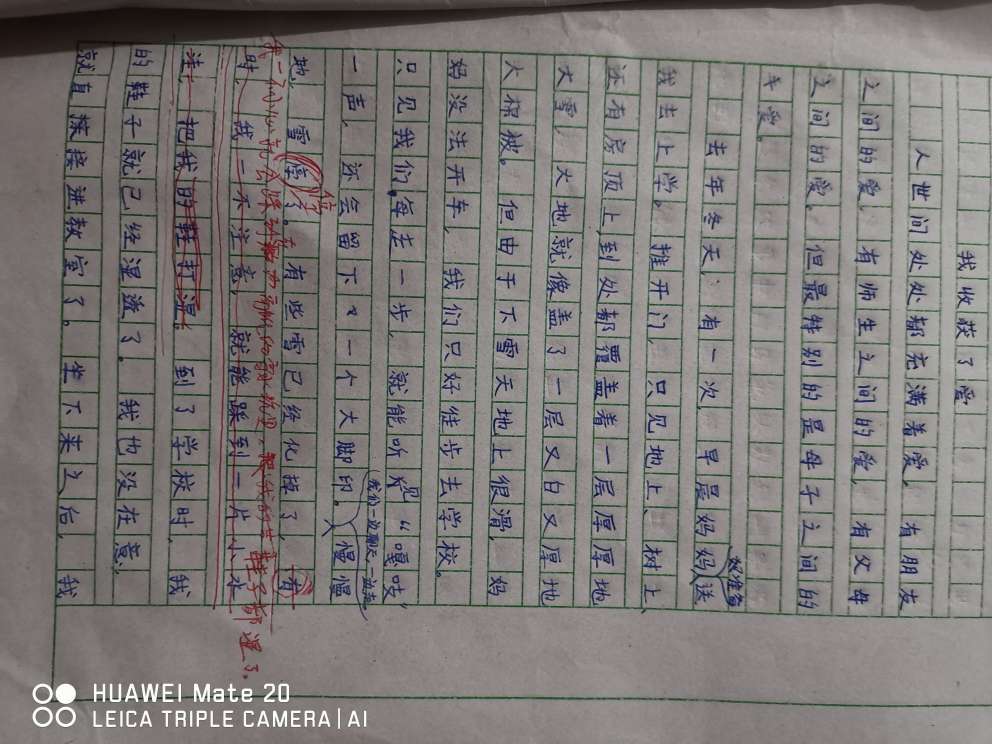 我收获了爱
人世间处处都充满着爱,有朋友
之间的爱,有师生之间的爱,有父母
之间的爱。但最特别的是母子之间的
爱。
去年冬天,有一次,早晨妈妈送
准备
我去上学。推开门,只见地上、树上、
还有房顶上到处都覆盖着一层厚厚地
大雪,大地就像盖了一层又白又厚地
大棉被。但由于下雪天地上很滑,妈
妈没法开车,我们只好徒步去学校。
只见我们每走一步,就能听见“嘎吱”
(我们一边聊天一边走)
一声,还会留下一个大脚印。慢慢
地,雪停了。有些雪已经化掉了,有
停
我一不小心就会踩到的雪坑里,我的鞋子都湿了。
时,我一不注意,就能踩到一片小水
洼,把我的鞋打湿。到了学校时,我
的鞋子就已经湿透了。我也没在意,
就直接进教室了。坐下来之后,我
HUAWEI Mate 20
LEICA TRIPLE CAMERA | AI